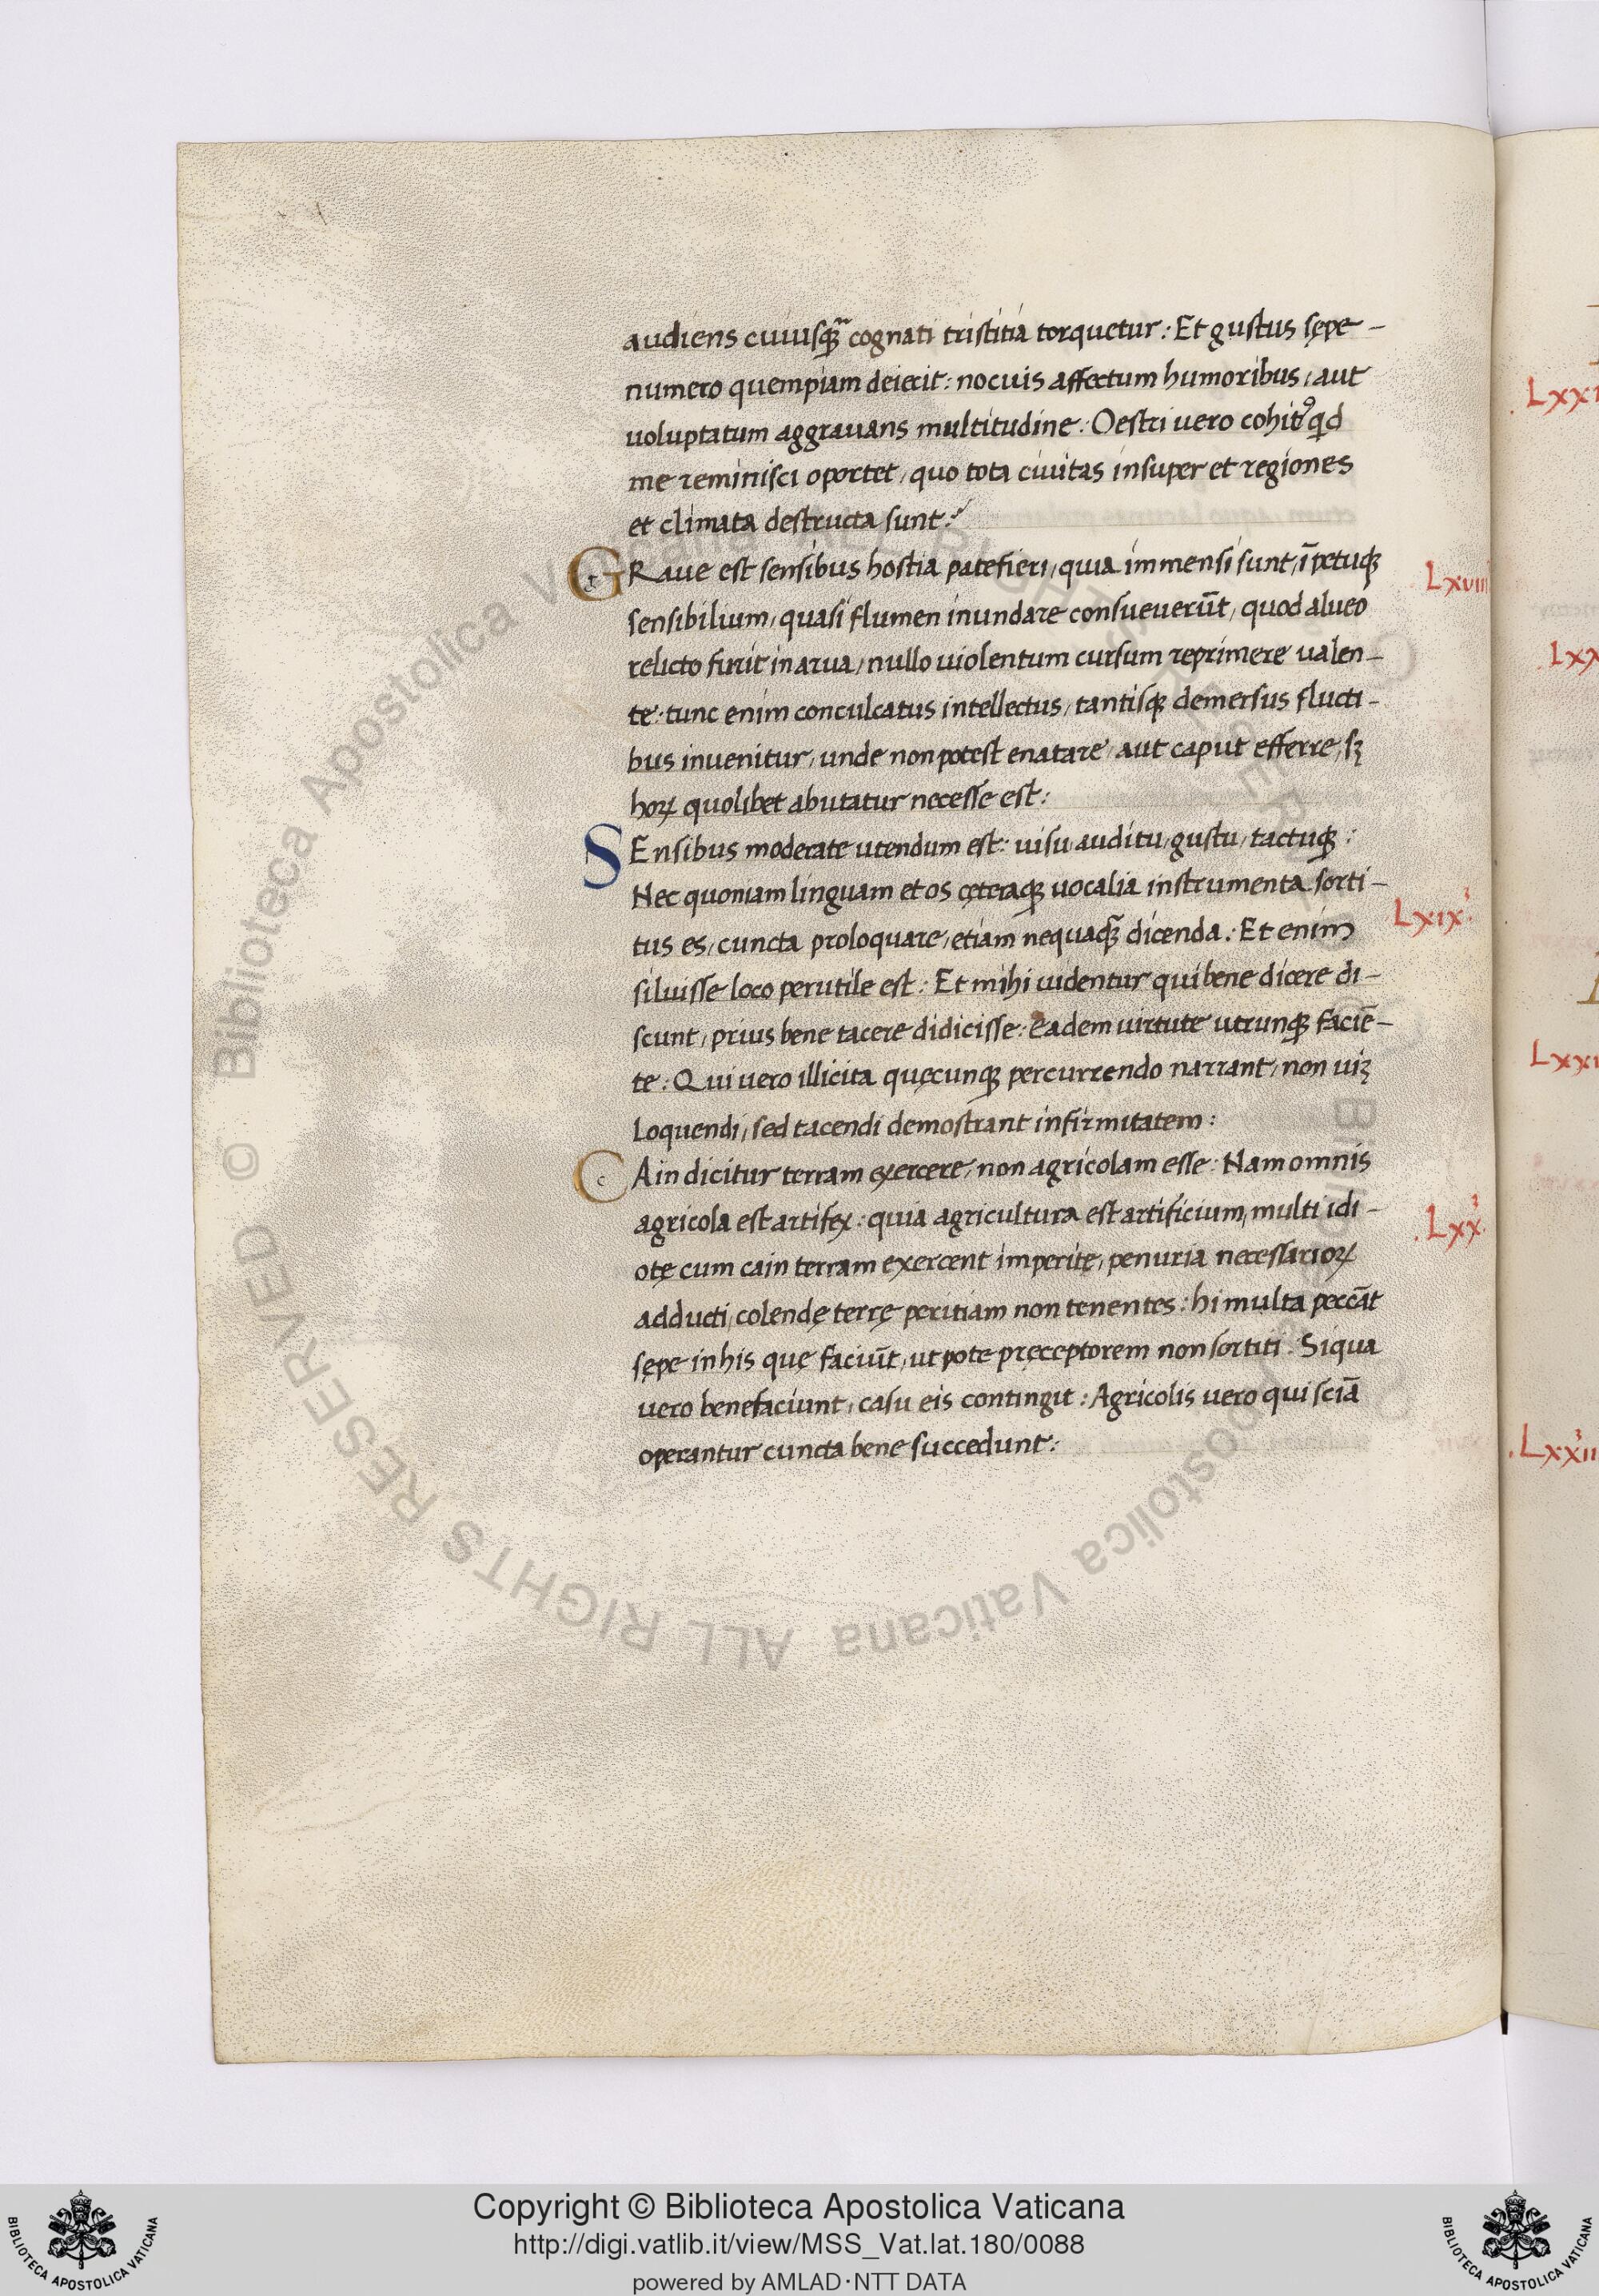 audiens cuiusqꝫ cognati tristitia torquetur: Et gustus sępe-
numero quempiam deiecit: nocuis affectum humoribus, aut
uoluptatum aggrauans multitudine. Oestri uero cohitꝰ qd
me reminisci oportet, quo tota ciuitas insuper et regiones
et climata destructa sunt:
GRaue est sensibus hostia patefieri, quia immensi sunt, īpetuqꝫ
Lxviii
sensibilium, quasi flumen inundare consueuerūt, quod alueo
relicto furit in arua, nullo uiolentum cursum reprimere ualen-
te: tunc enim conculcatus intellectus, tantisqꝫ demersus flucti-
bus inuenitur, unde non potest enatare, aut caput efferre, sꝫ
horꝝ quolibet abutatur necesse est:
SEnsibus moderate utendum est: uisu, auditu, gustu, tactuqꝫ:
Nec quoniam linguam et os cęteraqꝫ uocalia instrumenta sorti-
Lxix
tus es, cuncta proloquare, etiam nequaqꝫ dicenda. Et enim
siluisse loco perutile est: Et mihi uidentur qui bene dicere di-
scunt, prius bene tacere didicisse: eadem uirtute utrunqꝫ faciē-
te: Qui uero illicita quęcunqꝫ percurrendo narrant, non uiꝫ
Loquendi, sed tacendi demostrant infirmitatem:
CAin dicitur terram exercere, non agricolam esse: Nam omnis
agricola est artifex: quia agricultura est artificium, multi idi-
.Lxx.
otę cum cain terram exercent imperite, penuria necessarioꝝ
adducti, colendę terrę peritiam non tenentes: hi multa peccāt
sępe in his quę faciūt, ut pote pręceptorem non sortiti. Siqua
uero benefaciunt, casu eis contingit: Agricolis uero qui sciā
operantur cuncta bene succedunt:
© Biblioteca Apostolica Vaticana ALL RIGHTS RESERVED
Copyright © Biblioteca Apostolica Vaticana
http://digi.vatlib.it/view/MSS_Vat.lat.180/0088
powered by AMLAD·NTT DATA
BIBLIOTECA APOSTOLICA VATICANA
BIBLIOTECA APOSTOLICA VATICANA